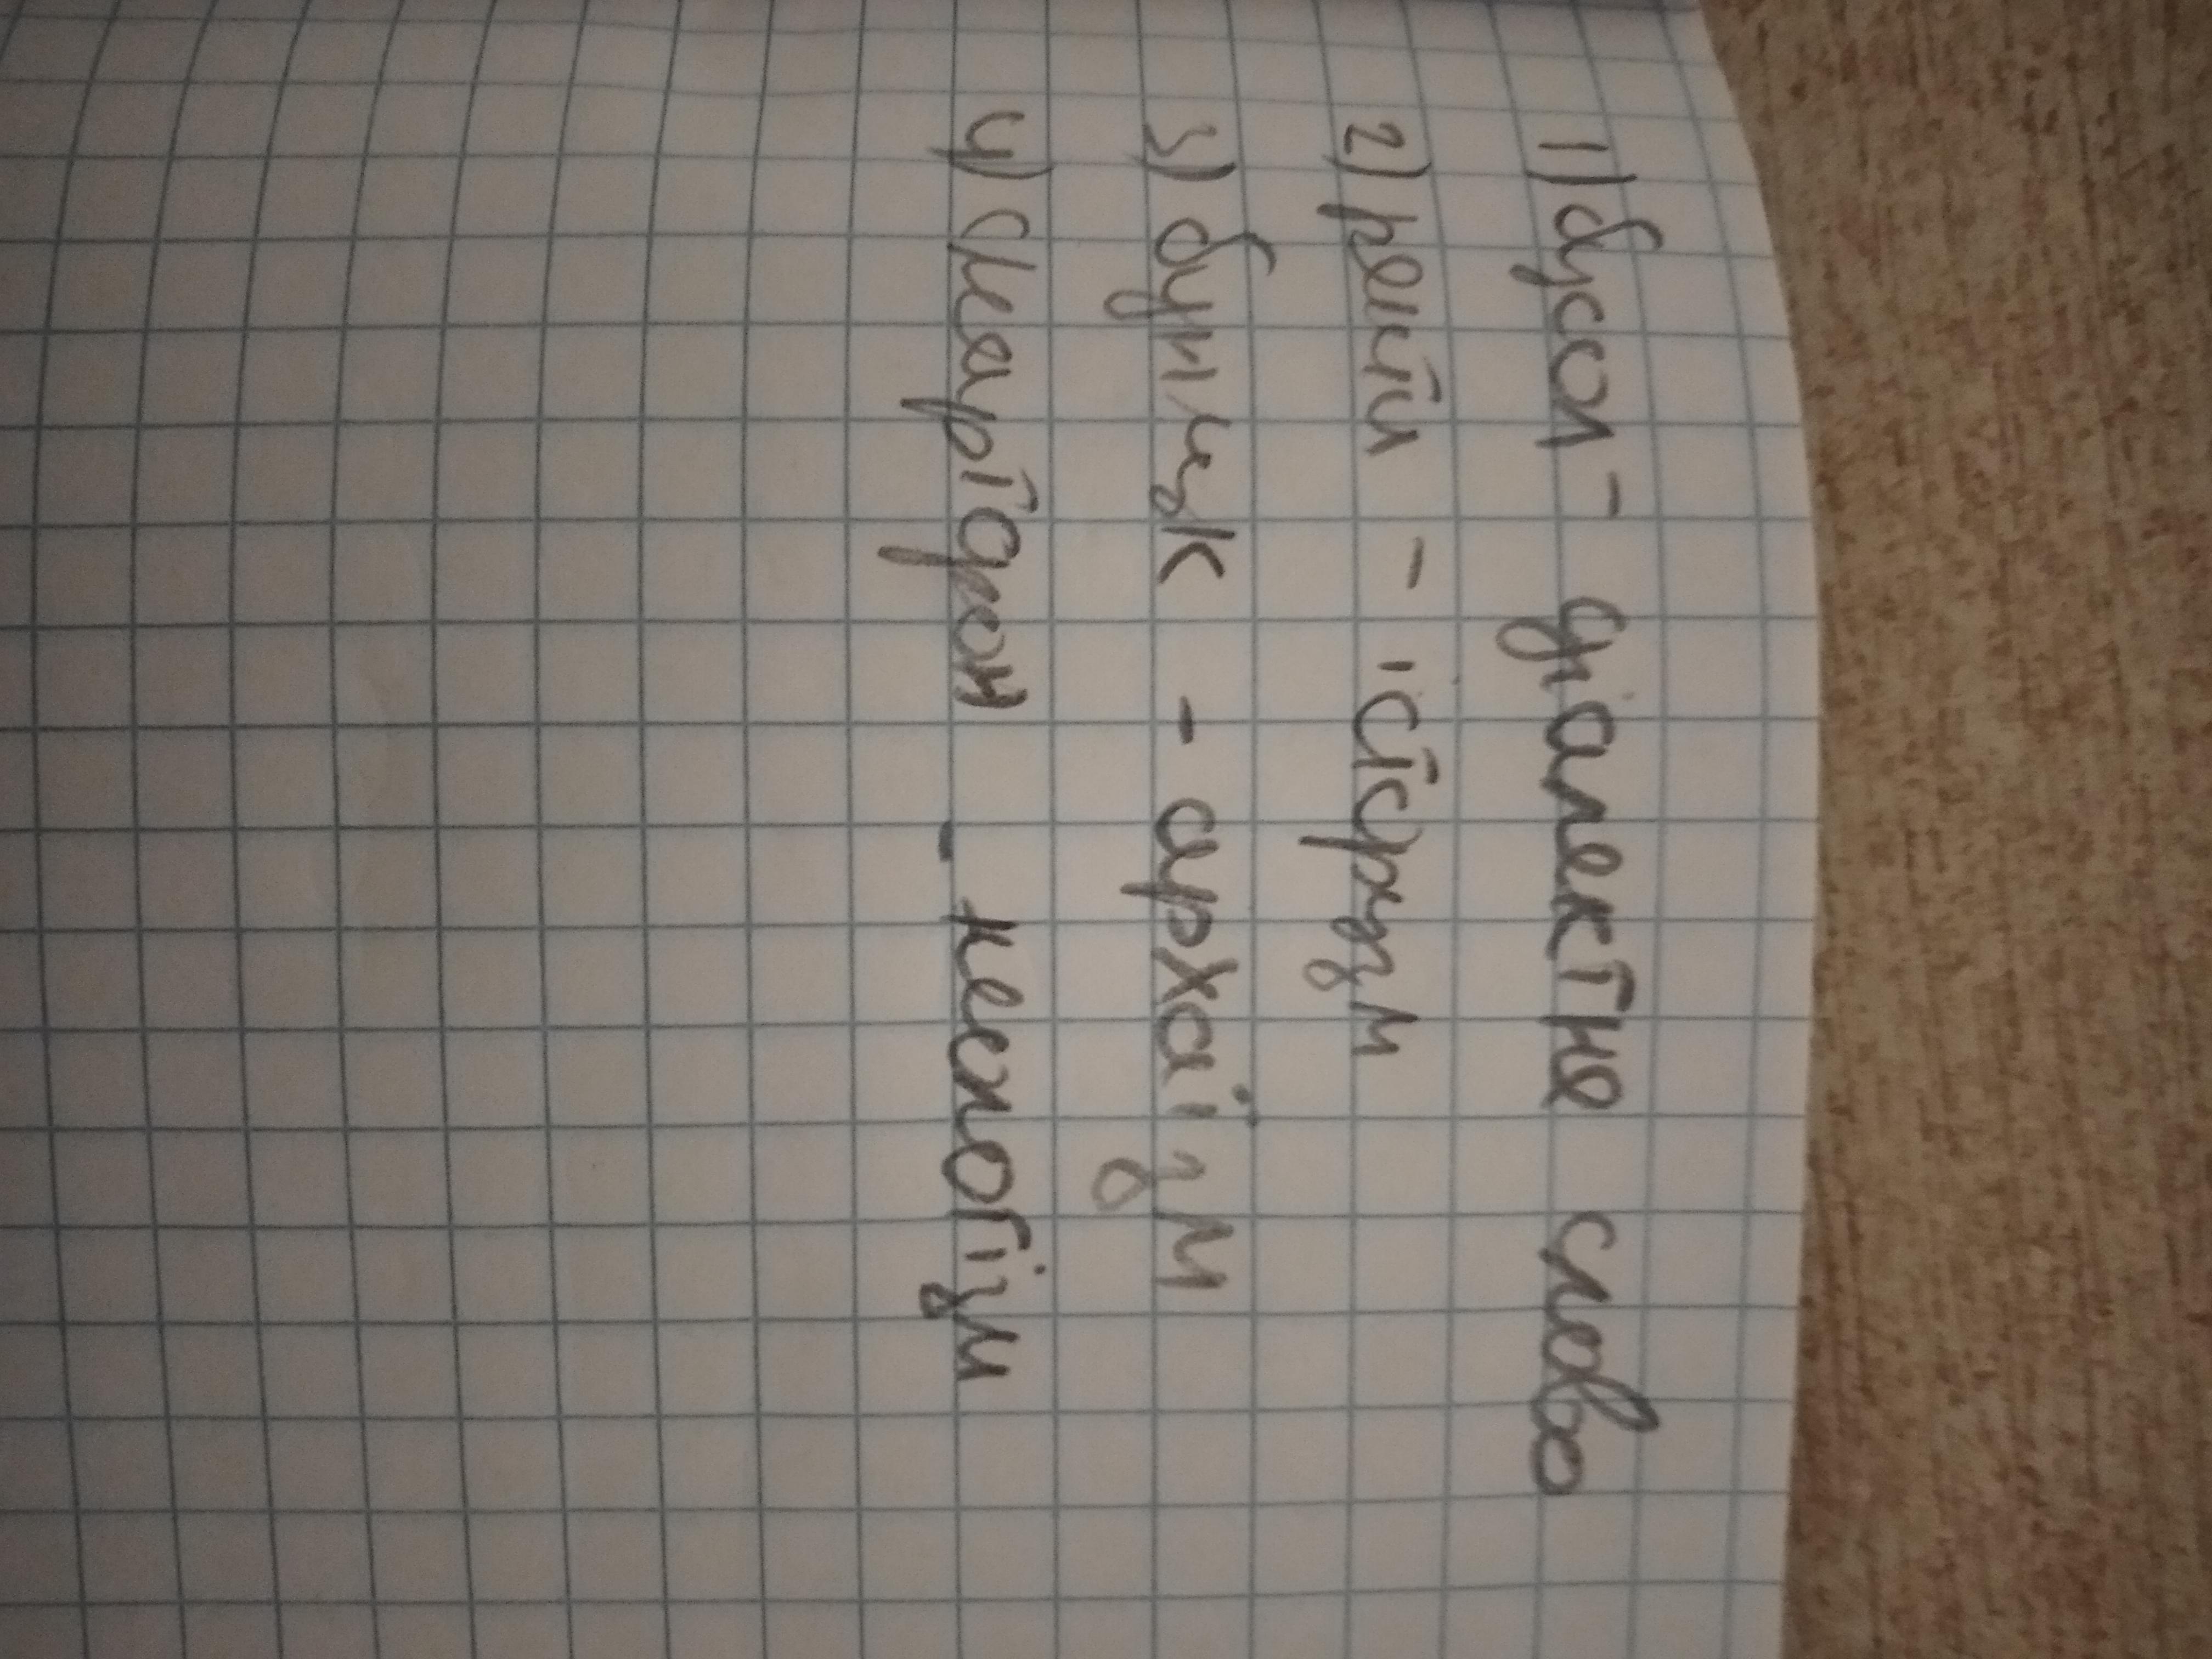 1) бусол - діалектне слово
2) ректи - історизм
3) бунчук - архаїзм
4) смартфон - неологізм